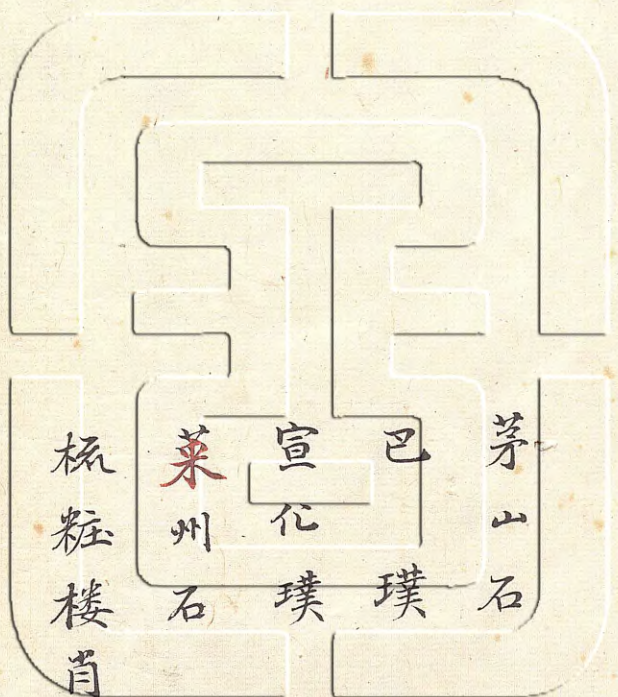 茅山石
巴璞
宣化璞
莱州石
梳粧楼肖